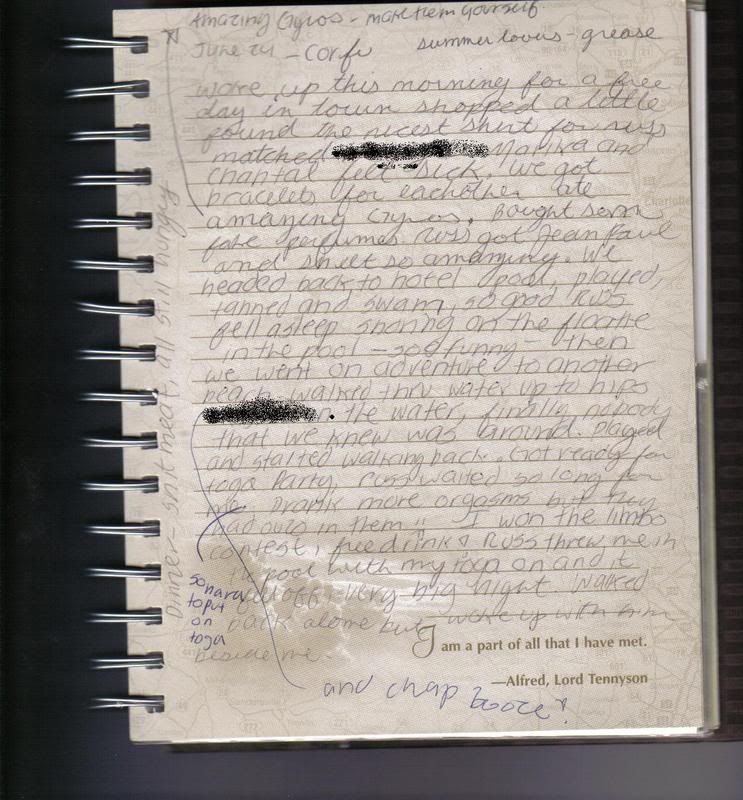 Amazing Gyros - make them yourself
June 24 - Corfu summer lovers - grease
woke up this morning for a free
day in town shopped a little
found the nicest shirt for russ
matched Marika and
chantal felt sick. We got
bracelets for eachother, ate
amazing Gyros. Bought some
fake perfumes russ got Jean Paul
and smelt so amazing. We
headed back to hotel pool, played,
tanned and swam, so good Russ
fell asleep snoring on the floatie
in the pool - soo funny - then
we went on adventure to another
beach walked thru water up to hips
the water, finally nobody
that we knew was around. Played
and started walking back. Got ready for
toga Party, russ waited so long for
me. Drank more orgasms but they
had ouzo in them!! I won the limbo
contest, free drink & Russ threw me in
pool with my toga on and it
fell off! Very big night. Walked
back alone but woke up with him
beside me.
Dinner - shit meat, all still hungry
so hard
to put
on
toga
and chap booze!
I am a part of all that I have met.
—Alfred, Lord Tennyson